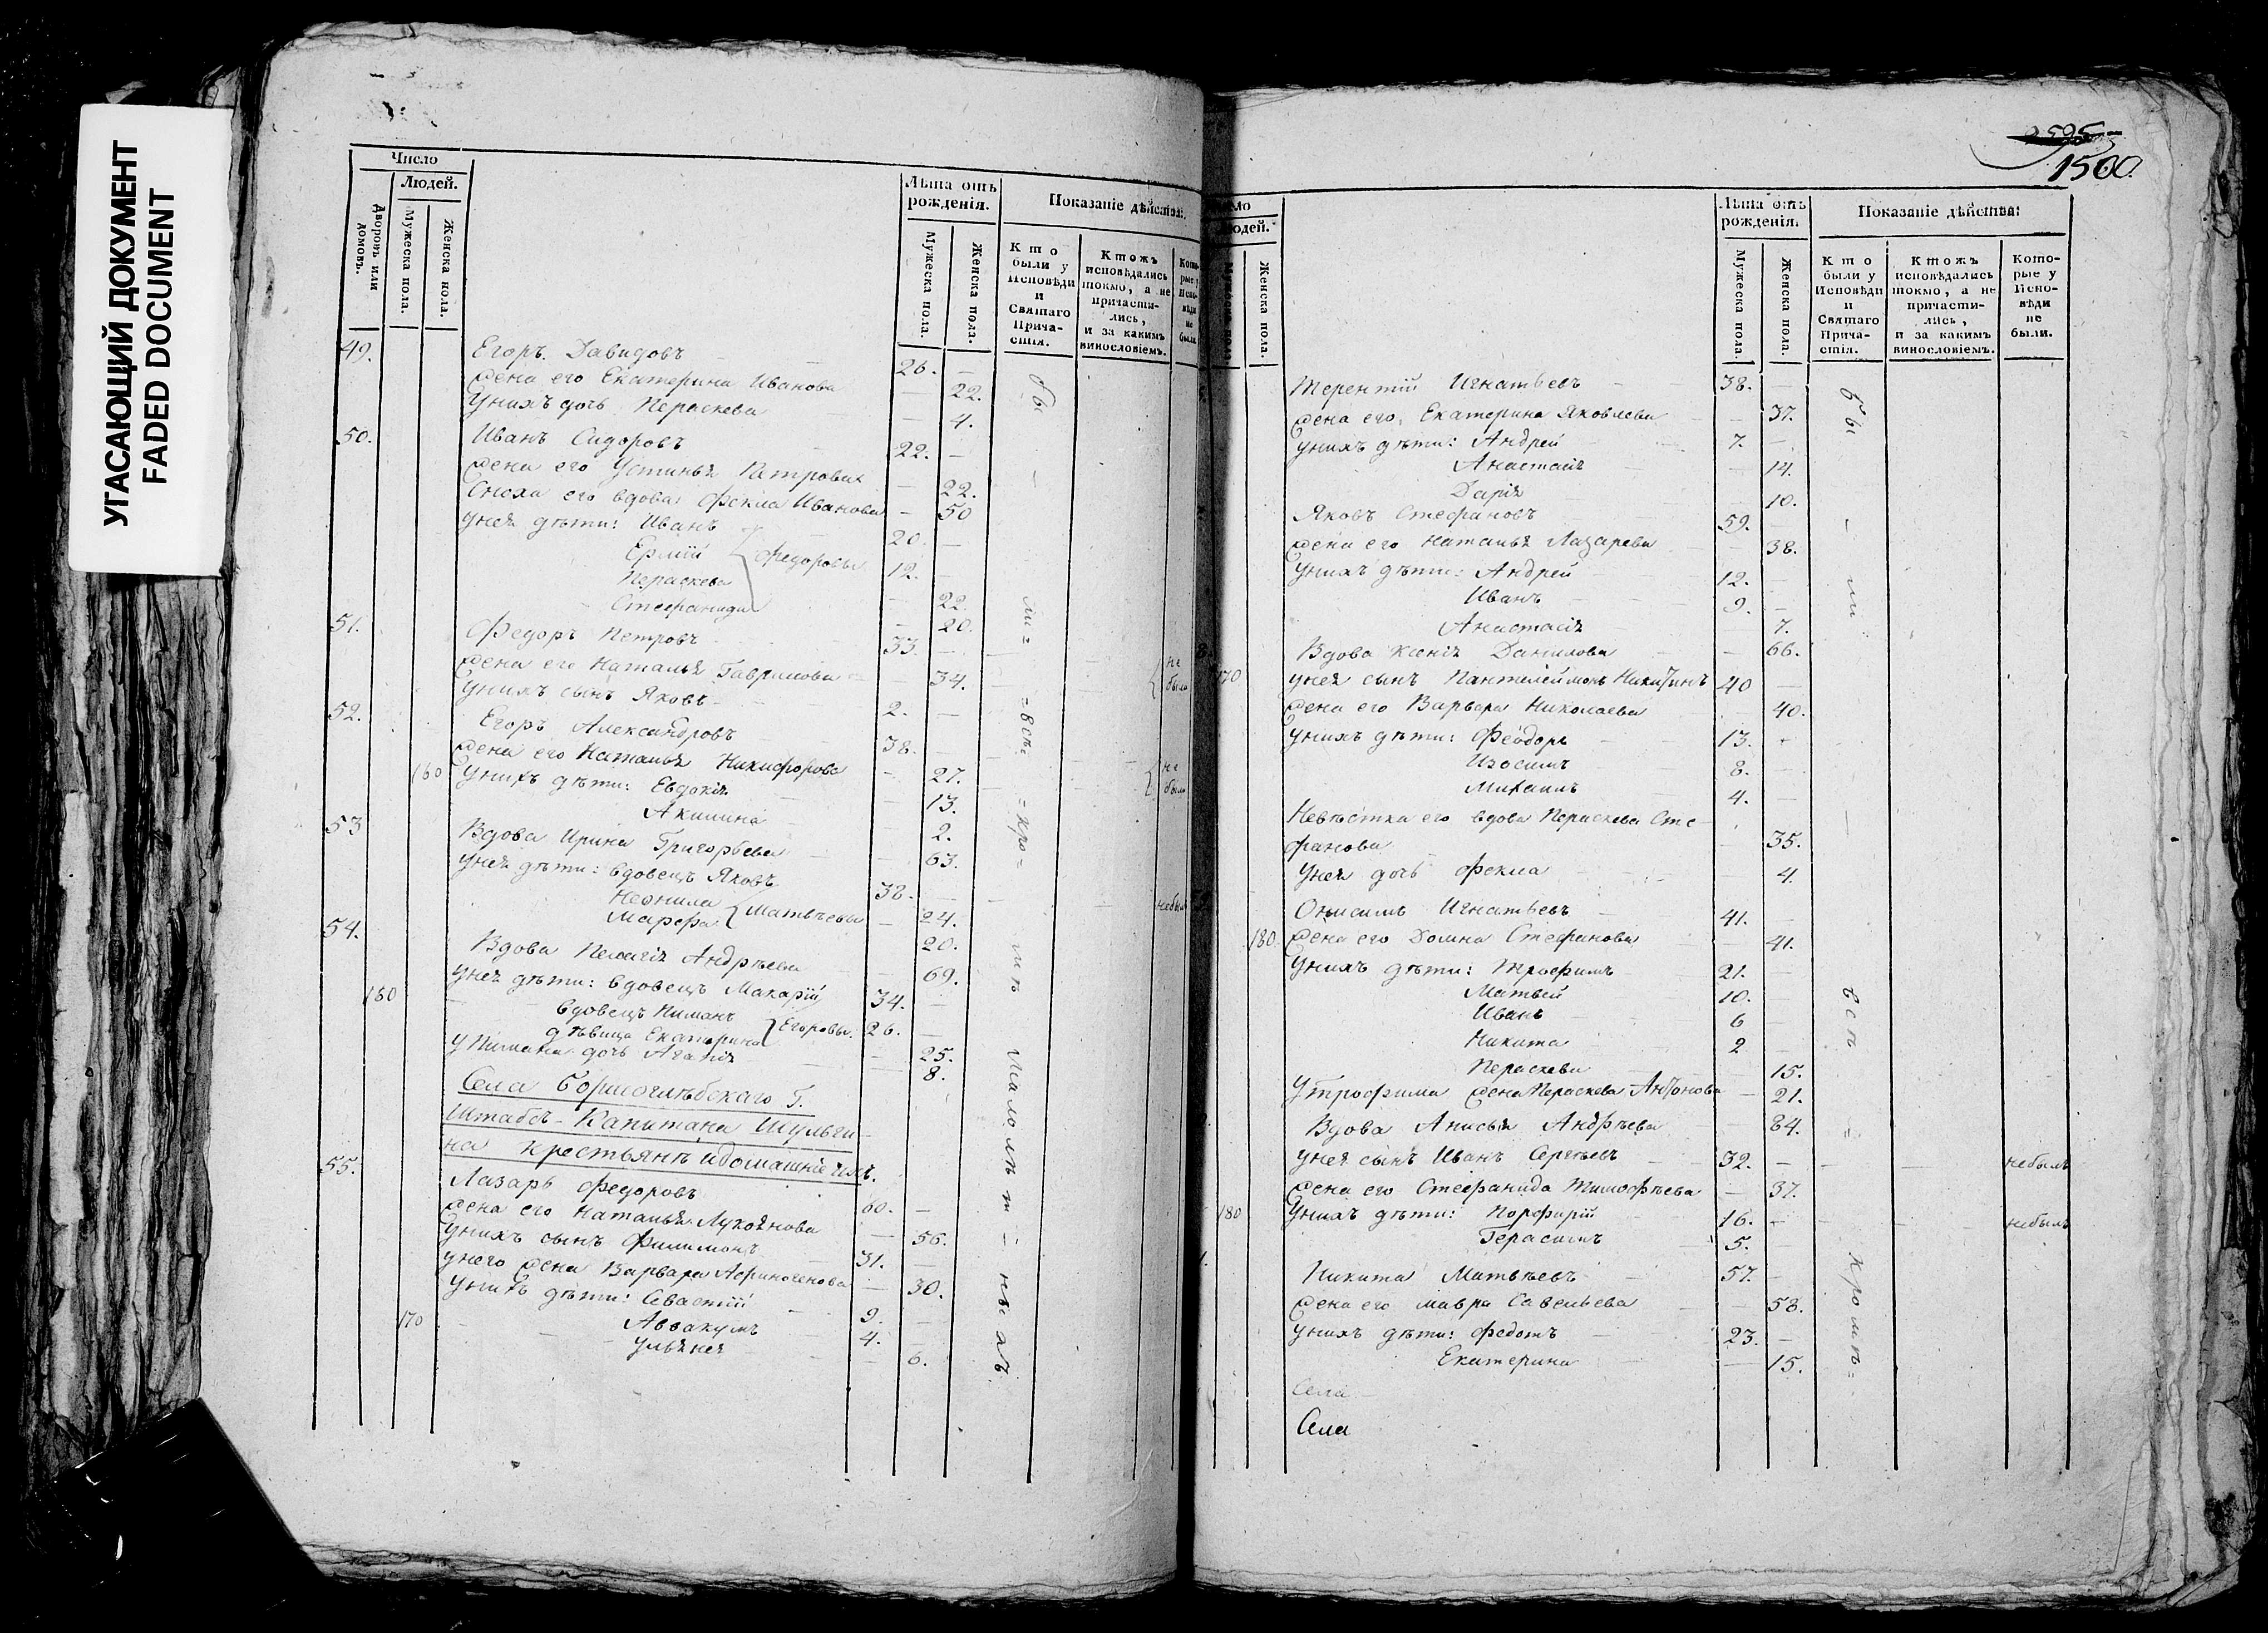 УГАСАЮЩИЙ ДОКУМЕНТ
FADED DOCUMENT
Число
Людей.
Дворовъ или домовъ.
Мужеска пола.
Женска пола.
Лѣта отъ рожденія.
Мужеска пола.
Женска пола.
Показаніе дѣйства:
Кто были у Исповѣди и Святаго Причастія.
Ктожъ исповѣдались токмо, а не причастились, и за какимъ винословіемъ.
Которые у Исповѣди не были.
49. Егоръ Давидовъ 26. —
Жена его Екатерина Иванова — 22.
У нихъ дочь Пераскева — 4.
50. Иванъ Сидоровъ 22. —
Жена его Устинья Петрова — 22.
Сноха его вдова Фекла Иванова — 50
У нея дѣти: Иванъ 20. —
Ермій } Федоровы 12. —
Пераскева — 22.
Стефанида — 20.
51. Федоръ Петровъ 33. —
Жена его Наталья Гаврилова — 34. не были
У нихъ сынъ Яковъ 2. —
52. Егоръ Александровъ 38.
Жена его Наталья Никифорова — 27. не были
160 У нихъ дѣти: Евдокія — 13.
Акилина — 2.
53 Вдова Ирина Григорьева — 63.
У нея дѣти: вдовецъ Яковъ 38. — небылъ
Неонила } Матвѣевы — 24.
Марфа 20.
54. Вдова Пелагія Андрѣева 69.
У нея дѣти: вдовецъ Макарій 34. —
160 вдовецъ Пиманъ } Егоровы 26. —
дѣвица Екатерина — 25.
У Пимана дочь Агапія 8.
Села Борисоглѣбскаго Г.
Штабсъ-Капитана Шульги-
на крестьянѣ и домашніе ихъ.
55. Лазарь Федоровъ 60. —
Жена его Наталья Лукоянова — 56.
У нихъ сынъ Филимонъ 31. —
У него жена Варвара Афиногенова — 30.
У нихъ дѣти: Севастій 9. —
170 Аввакумъ 4. —
Ульянея — 6.
бы - ли = = всѣ = = кро = мѣ мало лѣт = ныхъ
1500.
Женска пола.
Лѣта отъ рожденія.
Мужеска пола.
Женска пола.
Показаніе дѣйства:
Кто были у Исповѣди и Святаго Причастія.
Ктожъ исповѣдались токмо, а не причастились, и за какимъ винословіемъ.
Которые у Исповѣди не были.
Терентій Игнатьевъ 38. —
Жена его, Екатерина Яковлева — 37.
У нихъ дѣти: Андрей 7. —
Анастасія — 14.
Дарія 10.
Яковъ Стефановъ 59. —
Жена его Наталья Лазарева — 38.
У нихъ дѣти: Андрей 12. —
Иванъ 9. —
Анастасія — 7.
Вдова Ксенія Данилова — 66.
170 У нея сынъ Пантелеймонъ Никитинъ 40 —
Жена его Варвара Николаева 40.
У нихъ дѣти: Феодоръ 13. —
Изосимъ 8. —
Михаилъ 4. —
Невѣстка его вдова Пераскева Сте-
фанова — 35.
У нея дочь Фекла 4.
Онисимъ Игнатьевъ 41. —
180 Жена его Домна Стефанова — 41.
У нихъ дѣти: Трофимъ 21. —
Матвей 10. —
Иванъ 6
Никита 2 —
Пераскева 15.
У Трофима жена Пераскева Антонова — 21.
Вдова Анисья Андрѣева — 84.
У нея сынъ Иванъ Сергѣевъ 32. — небылъ
Жена его Стефанида Тимофѣева — 37.
180 У нихъ дѣти: Порфирій 16. — небылъ
Герасимъ 5. —
Никита Матвѣевъ 57. —
Жена его Мавра Савельева 58.
У нихъ дѣти: Федотъ 23. —
Екатерина — 15.
Села
Села
бы - ли — всѣ = кромѣ =